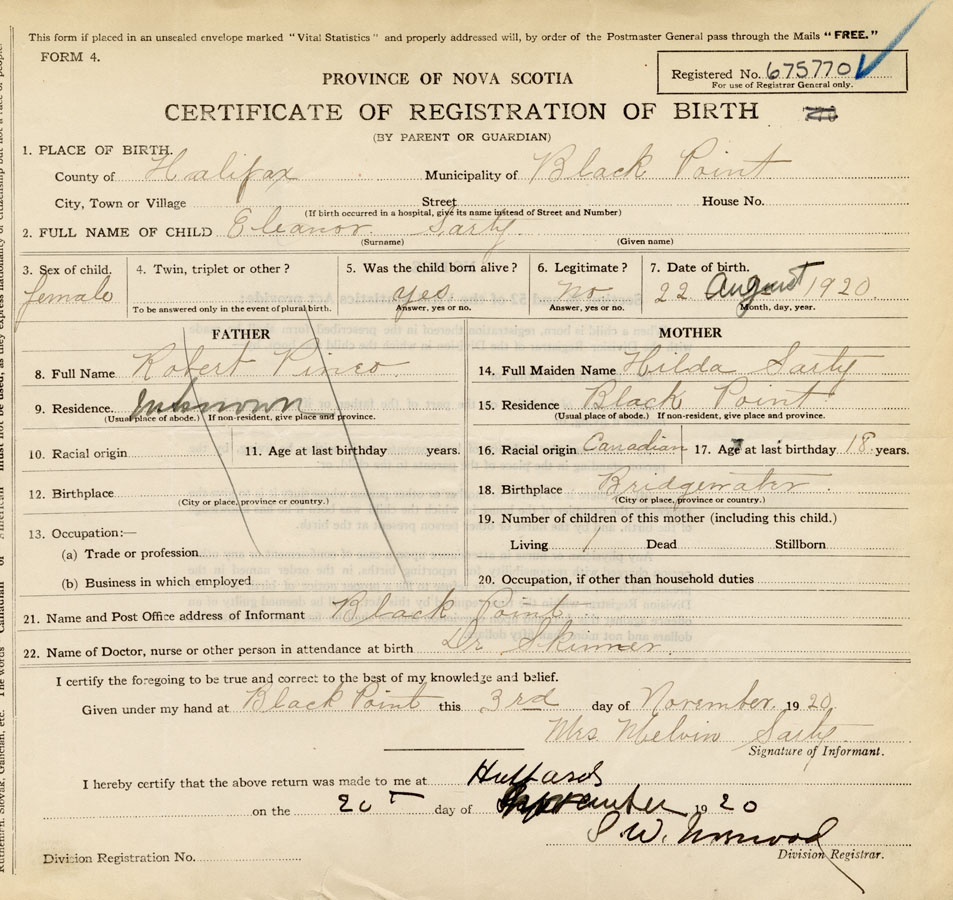 This form if placed in an unsealed envelope marked "Vital Statistics" and properly addressed will, by order of the Postmaster General pass through the Mails "FREE."
FORM 4.
Registered No. 675770
For use of Registrar General only.
PROVINCE OF NOVA SCOTIA
CERTIFICATE OF REGISTRATION OF BIRTH
(BY PARENT OR GUARDIAN)
1. PLACE OF BIRTH.
County of Halifax Municipality of Black Point
City, Town or Village Street House No.
(If birth occurred in a hospital, give its name instead of Street and Number)
2. FULL NAME OF CHILD Eleanor Sarty
(Surname) (Given name)
3. Sex of child. 4. Twin, triplet or other? 5. Was the child born alive? 6. Legitimate? 7. Date of birth.
female yes no 22 August 1920
To be answered only in the event of plural birth. Answer, yes or no. Answer, yes or no. Month, day, year.
FATHER
8. Full Name Robert Pineo
9. Residence. unknown
(Usual place of abode.) If non-resident, give place and province.
10. Racial origin 11. Age at last birthday years.
12. Birthplace
(City or place, province or country.)
13. Occupation:—
(a) Trade or profession
(b) Business in which employed
MOTHER
14. Full Maiden Name Hilda Sarty
15. Residence Black Point
(Usual place of abode.) If non-resident, give place and province.
16. Racial origin Canadian 17. Age at last birthday 18 years.
18. Birthplace Bridgewater
(City or place, province or country.)
19. Number of children of this mother (including this child.)
Living 1 Dead Stillborn
20. Occupation, if other than household duties
21. Name and Post Office address of Informant Black Point
22. Name of Doctor, nurse or other person in attendance at birth Dr Skinner
I certify the foregoing to be true and correct to the best of my knowledge and belief.
Given under my hand at Black Point this 3rd day of November 1920
Mrs Melvin Sarty
Signature of Informant.
I hereby certify that the above return was made to me at
on the 20 day of 1920
Division Registrar.
Division Registration No.